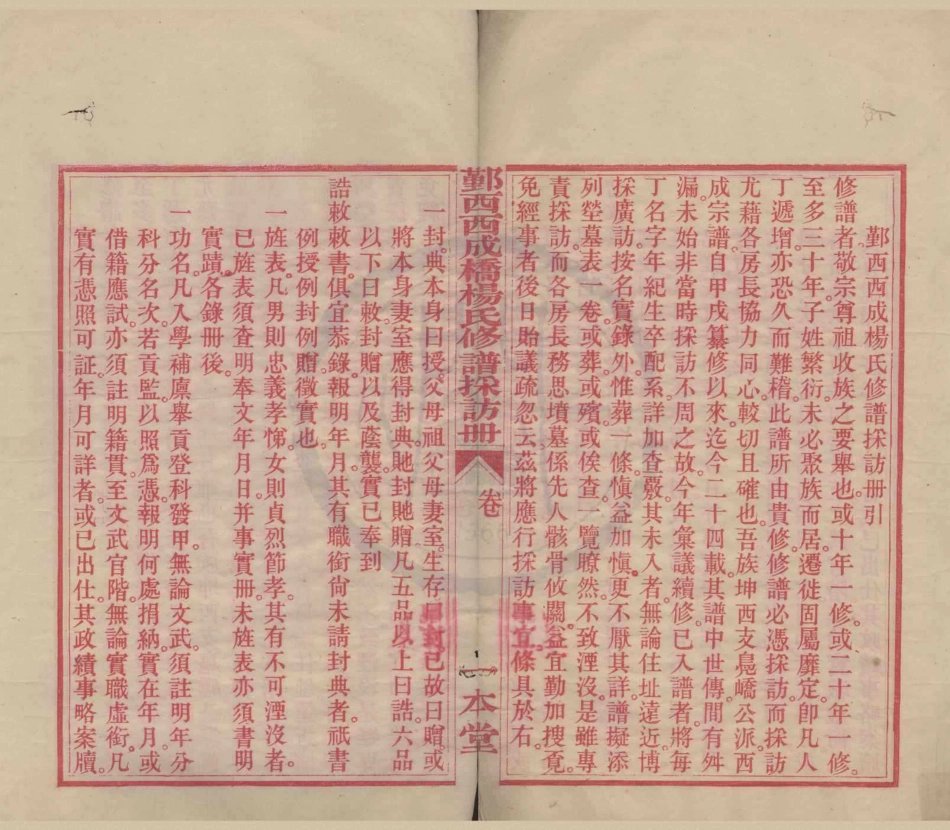 鄞西西成楊氏修譜採訪册引
修譜者敬宗尊祖收族之要舉也或十年一修或二十年一修
至多三十年子姓繁衍未必聚族而居遷徙固屬靡定卽凡人
丁遞增亦恐久而難稽此譜所由貴修修譜必憑採訪而採訪
尤藉各房長協力同心較切且確也吾族坤西支臮嶠公派西
成宗譜自甲戌纂修以來迄今二十四載其譜中世傳間有舛
漏未始非當時採訪不周之故今年彙議續修已入譜者將每
丁名字年紀生卒配系詳加查覈其未入者無論住址遠近博
採廣訪按名實錄外惟葬一條愼益加愼更不厭其詳譜擬添
列塋墓表一卷或葬或殯或俟查一覽瞭然不致湮沒是雖專
責採訪而各房長務思墳墓係先人骸骨攸關益宜勤加搜覓
免經事者後日貽議疏忽云茲將應行採訪事宜條具於右
鄞西西成橋楊氏修譜採訪册
卷
一本堂
一封典本身曰授父母祖父母妻室生存曰封已故曰贈或
將本身妻室應得封典貤封貤贈凡五品以上曰誥六品
以下曰敕封贈以及蔭襲實已奉到
誥敕敕書俱宜恭錄報明年月其有職銜尙未請封典者祇書
例授例封例贈徵實也
一旌表凡男則忠義孝悌女則貞烈節孝其有不可湮沒者
已旌表須查明奉文年月日并事實册未旌表亦須書明
實蹟各錄册後
一功名凡入學補廩舉貢登科發甲無論文武須註明年分
科分名次若貢監以照爲憑報明何處捐納實在年月或
借籍應試亦須註明籍貫至文武官階無論實職虛銜凡
實有憑照可証年月可詳者或已出仕其政績事略案牘